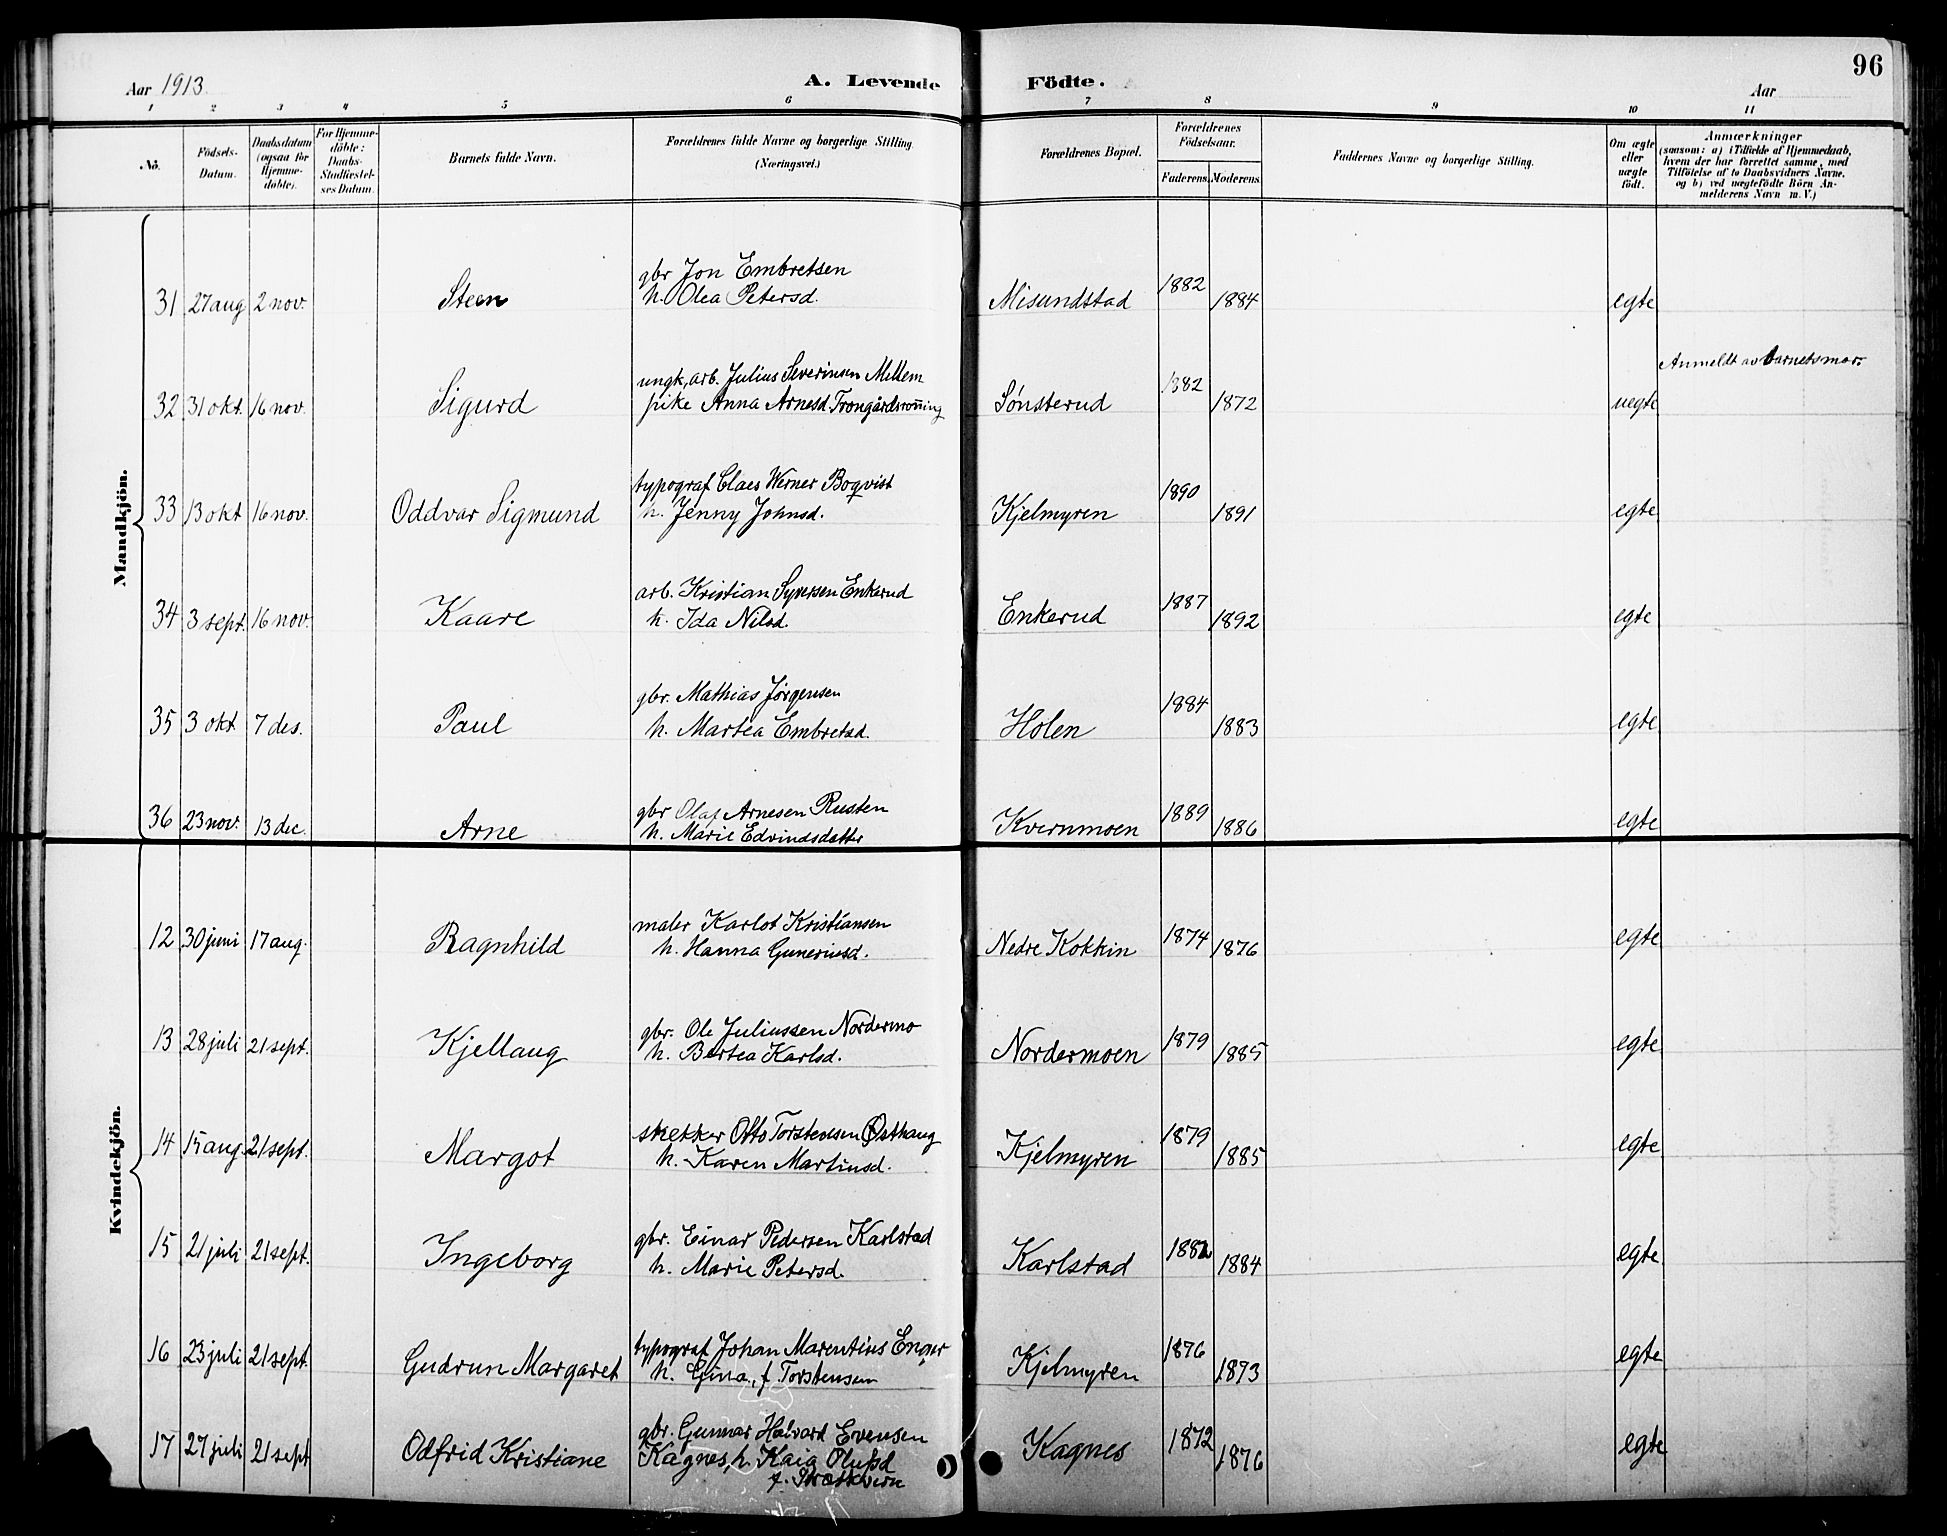 96
Aar 1913 A. Levende Födte. Aar
1 2 3 4 5 6 7 8 9 10 11
Nö. Födsels-Datum. Daabsdatum (ogsaa for Hjemme-döbte). For Hjemme-döbte: Daabs-Stadfæstel-ses Datum. Barnets fulde Navn. Forældrenes fulde Navne og borgerlige Stilling (Næringsvei.) Forældrenes Bopæl. Forældrenes Födselsaar. Faderens. Moderens. Faddernes Navne og borgerlige Stilling. Om ægte eller uægte födt. Anmærkninger (saasom: a) i Tilfælde af Hjemmedaab, hvem der har forrettet samme, med Tilföielse af to Daabsvidners Navne, og b) ved uægtefödte Börn An-melderens Navn m. V.)
Mandkjön.
gbr Jon Embretsen
31 27 aug 2 nov. Steen h. Olea Petersd. Misundstad 1882 1884 egte
Anmeldt av barnets mor.
ungk, arb. Julius Severinsen Mellem
32 31 okt. 16 nov. Sigurd pike Anna Arnesd. Trongårdsroning Sønsterud 1882 1872 uegte
typograf Claes Werner Boqvist
33 13 okt 16 nov. Oddvar Sigmund h. Jenny Johnsd. Kjelmyren 1890 1891 egte
arb. Kristian Syversen Enkerud
34 3 sept. 16 nov. Kaare h. Ida Nilsd. Enkerud 1887 1892 egte
gbr. Mathias Jørgensen
35 3 okt. 7 des. Paul h. Martea Embretsd. Holen 1884 1883 egte
gbr Olaf Arnesen Rusten
36 23 nov. 13 dec. Arne h. Marie Edvindsdatter Kvernmoen 1889 1886 egte
Kvindekjön.
maler Karlot Kristiansen
12 30 juni 17 aug. Ragnhild h. Hanna Guneriusd. Nedre Kokkin 1874 1876 egte
gbr. Ole Juliussen Nordermo
13 28 juli 21 sept. Kjellaug h. Bertea Karlsd. Nordermoen 1879 1885 egte
Otto Torstensen Østhaug
14 15 aug. 21 sept. Margot h. Karen Martinsd. Kjelmyren 1879 1885 egte
gbr. Einar Pedersen Karlstad
15 21 juli 21 sept. Ingeborg h. Marie Petersd. Karlstad 1882 1884 egte
typograf Johan Marentius Enger
16 23 juli 21 sept. Gudrun Margaret h. Gina, f. Torstensen Kjelmyren 1876 1873 egte
gbr. Gunnar Halvard Evensen
17 27 juli 21 sept Odfrid Kristiane Kagnes, h. Kaia Olufsd Kagnes 1872 1876 egte